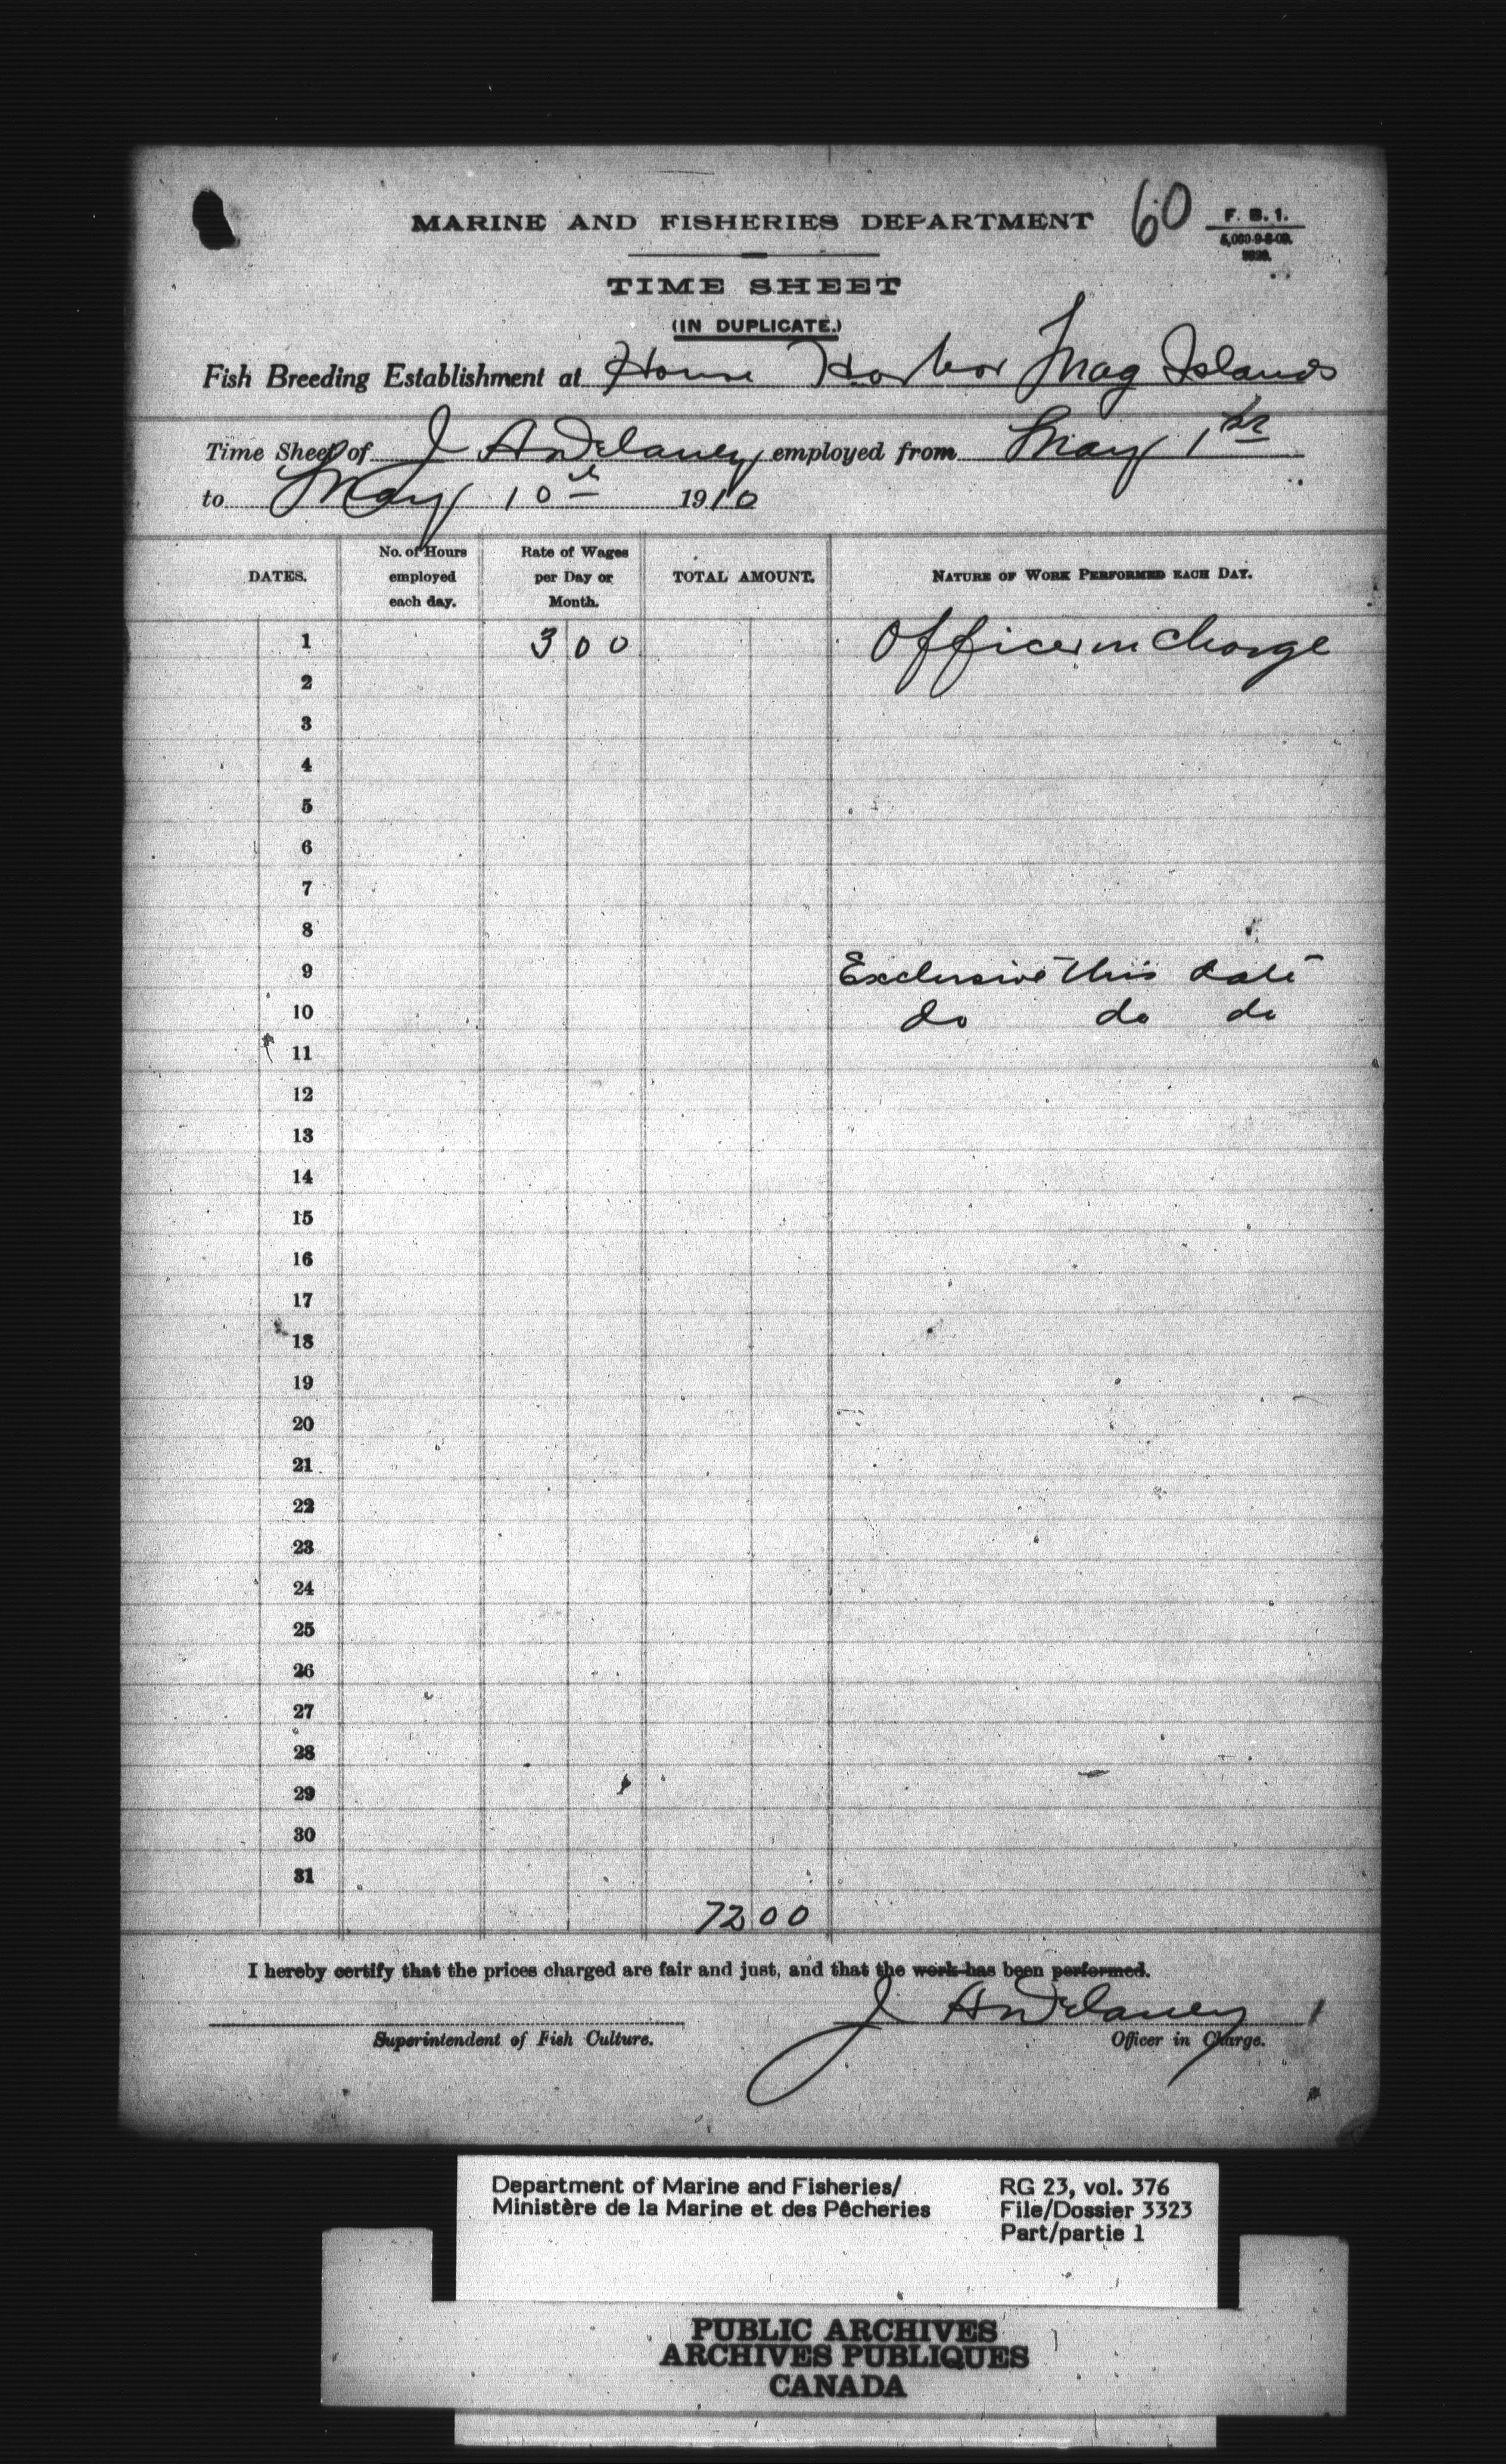 MARINE AND FISHERIES DEPARTMENT 60 F. B. 1.
TIME SHEET
(IN DUPLICATE.)
Fish Breeding Establishment at House Harbor Mag Islands
Time Sheet of J A Delaney employed from May 1st
to May 10th 1910
DATES. No. of Hours employed each day. Rate of Wages per Day or Month. TOTAL AMOUNT. NATURE OF WORK PERFORMED EACH DAY.
1 3 00 Officer in Charge
2
3
4
5
6
7
8
9 Exclusive this date
10 do do do
11
12
13
14
15
16
17
18
19
20
21
22
23
24
25
26
27
28
29
30
31
72 00
I hereby certify that the prices charged are fair and just, and that the work has been performed.
J A Delaney
Superintendent of Fish Culture. Officer in Charge.
Department of Marine and Fisheries/ RG 23, vol. 376
Ministère de la Marine et des Pêcheries File/Dossier 3323
Part/partie 1
PUBLIC ARCHIVES
ARCHIVES PUBLIQUES
CANADA